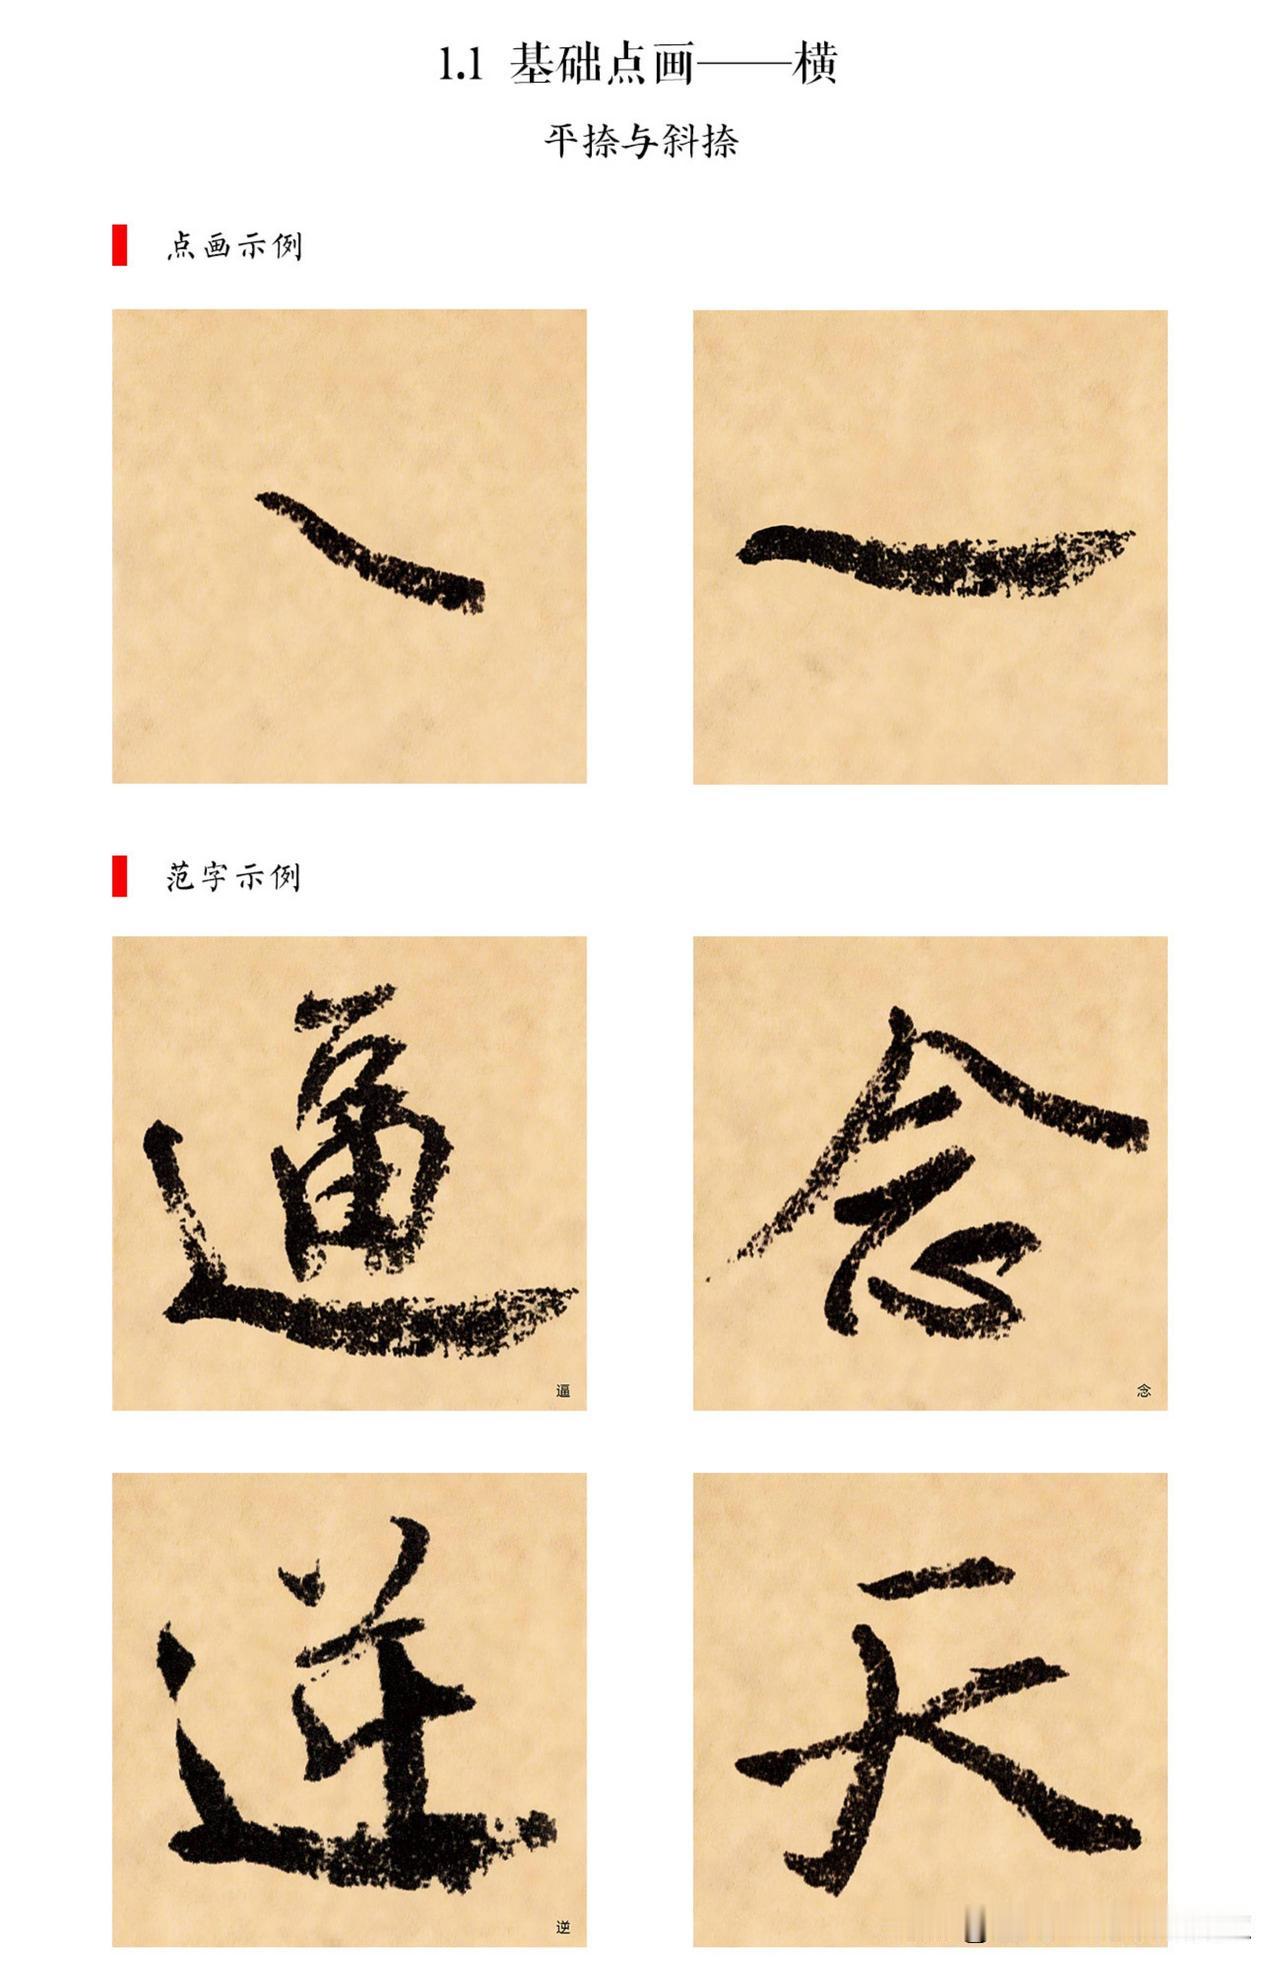 1.1 基础点画——横
平捺与斜捺
点画示例
范字示例
逼 念
逼 念
逆 天
逆